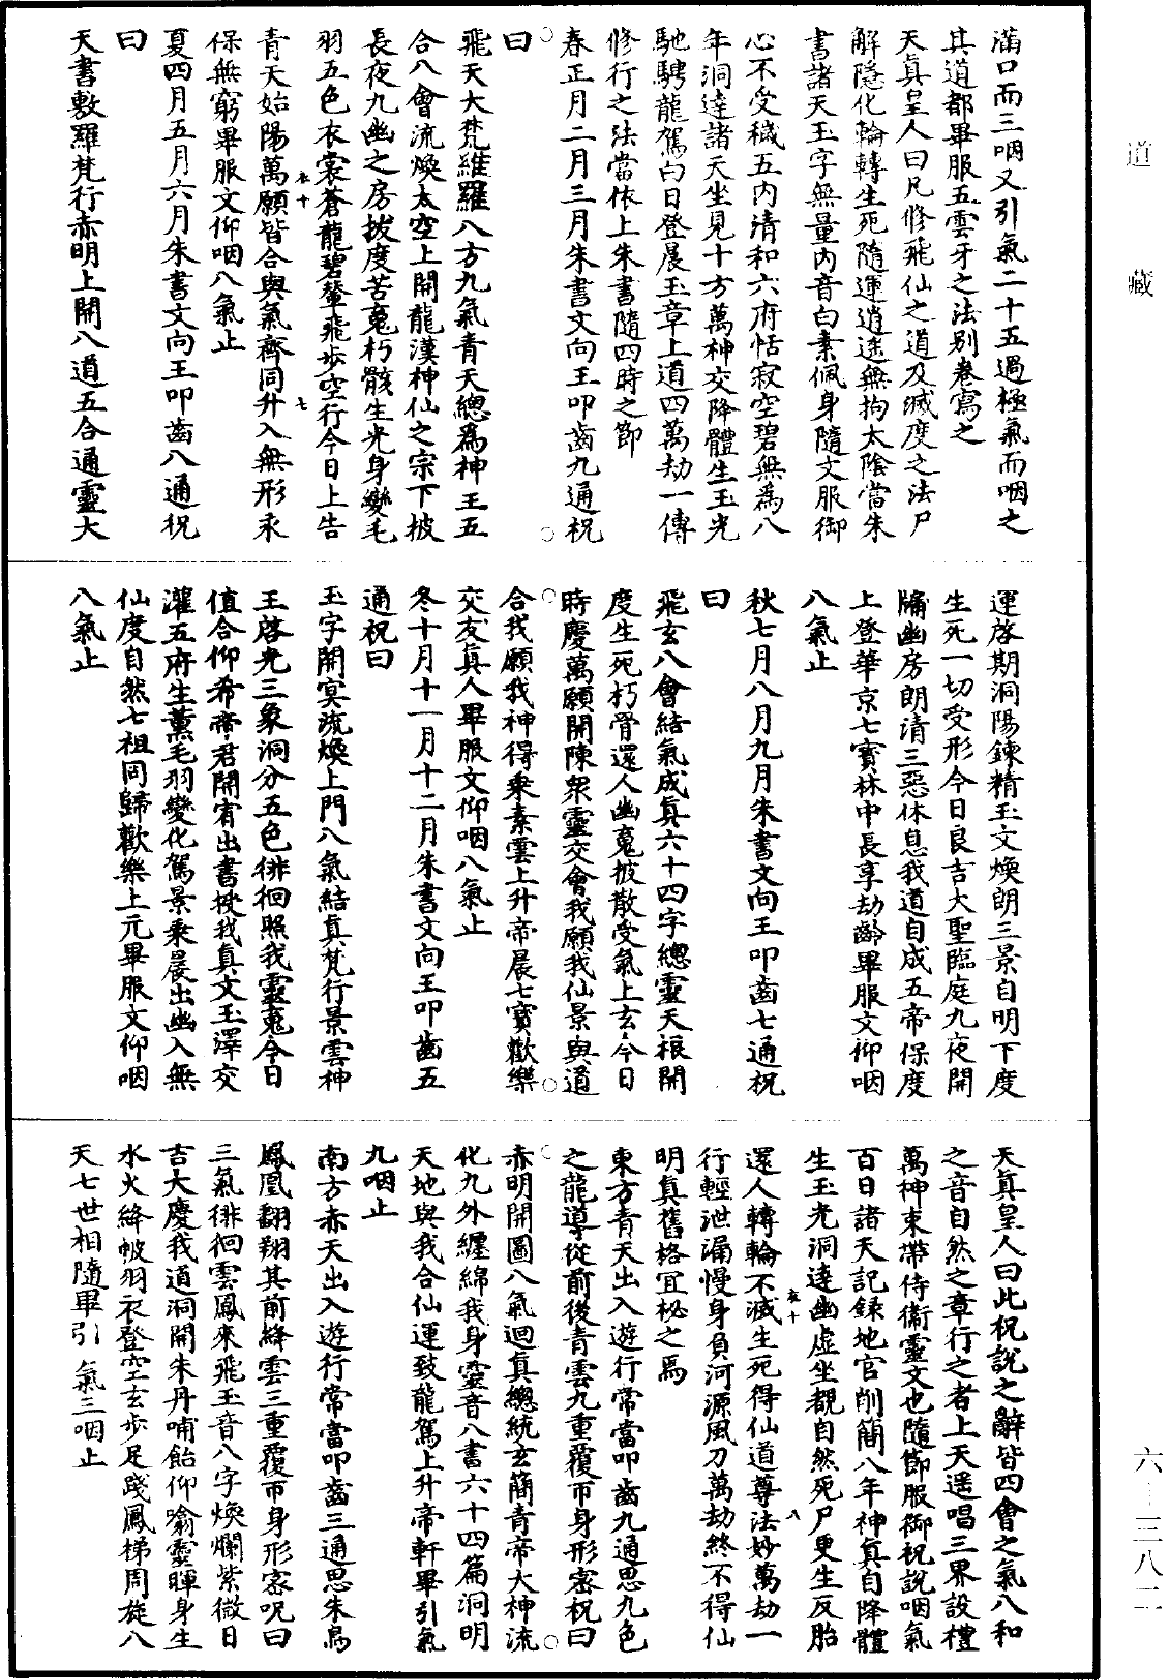 道藏
滿口而三咽又引氣二十五過極氣而咽之
其道都畢服五雲牙之法別卷寫之
天真皇人曰凡修飛仙之道及滅度之法尸
解隱化輪轉生死隨運逍遙無拘太陰當朱
書諸天玉字無量內音白素佩身隨文服御
心不受穢五內清和六府恬寂空碧無為八
年洞達諸天坐見十方萬神交降體生玉光
馳騁龍駕白日登晨玉章上道四萬劫一傳
修行之法當依上朱書隨四時之節
春正月二月三月朱書文向王叩齒九通祝
曰
飛天大梵維羅八方九氣青天總為神王五
合八會流煥太空上開龍漢神仙之宗下披
長夜九幽之房拔度苦䰟朽骸生光身變毛
羽五色衣裳蒼龍碧輦飛步空行今日上告
青天始陽萬願皆合與氣齊同升入無形永
保無窮畢服文仰咽八氣止
夏四月五月六月朱書文向王叩齒八通祝
曰
天書敷羅梵行赤明上開八道五合通靈大
運啓期洞陽鍊精玉文煥朗三景自明下度
生死一切受形今日良吉大聖臨庭九夜開
牖幽房朗清三惡休息我道自成五帝保度
上登華京七寶林中長享劫齡畢服文仰咽
八氣止
秋七月八月九月朱書文向王叩齒七通祝
曰
飛玄八會結氣成真六十四字總靈天根開
度生死朽骨還人幽䰟披散受氣上玄今日
時慶萬願開陳衆靈交會我願我仙景與道
合我願我神得乘素雲上升帝晨七寶歡樂
交友真人畢服文仰咽八氣止
冬十月十一月十二月朱書文向王叩齒五
通祝曰
玉字開冥流煥上門八氣結真梵行景雲神
王啓光三象洞分五色徘徊照我靈䰟今日
值合仰希帝君開宥出書授我真文玉澤交
灌五府生薰毛羽變化駕景乘晨出幽入無
仙度自然七祖同歸歡樂上元畢服文仰咽
八氣止
天真皇人曰此祝說之辭皆四會之氣八和
之音自然之章行之者上天遥唱三界設禮
萬神束帶侍衛靈文也隨節服御祝說咽氣
百日諸天記錄地官削簡八年神真自降體
生玉光洞達幽虛坐覩自然死尸更生反胎
還人轉輪不滅生死得仙道尊法妙萬劫一
行輕泄漏慢身負河源風刀萬劫終不得仙
明真舊格宜祕之焉
東方青天出入遊行常當叩齒九通思九色
之龍導從前後青雲九重覆帀身形密祝曰
赤明開圖八氣迴真總統玄簡青帝大神流
化九外纏綿我身靈音八書六十四篇洞明
天地與我合仙運致龍駕上升帝軒畢引氣
九咽止
南方赤天出入遊行常當叩齒三通思朱鳥
鳳凰翻翔其前絳雲三重覆帀身形密呪曰
三氣徘徊雲鳳來飛玉音八字煥爛紫微日
吉大慶我道洞開朱丹哺飴仰噏靈暉身生
水火絳帔羽衣登空玄步足踐鳳梯周旋八
天七世相隨畢引氣三咽止
六—三八二